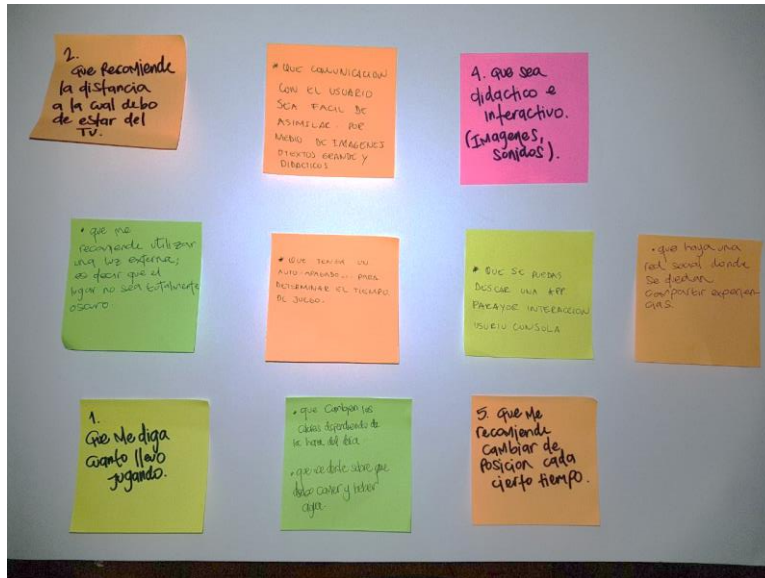 2.
que Recomiende
la distancia
a la cual debo
de estar del
TV.
• QUE COMUNICACION
CON EL USUARIO
SEA FACIL DE
ASIMILAR POR
MEDIO DE IMAGENES
OTEXTOS GRANDE Y
DIDACTICOS
4. que sea
didactico e
interactivo.
(Imagenes,
sonidos).
• que me
recomiende utilizar
una luz externa;
es decir que el
lugar no sea totalmente
oscuro.
• QUE TENGA UN
AUTO-APAGADO... PARA
DETERMINAR EL TIEMPO
DE JUEGO.
• QUE SE PUEDAS
DESCAR UNA APP
PARAYOR INTERACCION
USURIU CONSOLA
• que haya una
red social donde
se puedan
compartir experien-
cias.
1.
Que Me diga
cuanto llevo
jugando.
• que cambien los
dependiendo de
la hora del dia.
• que me sobre que
debo comer y beber
agua.
5. que Me
recomiende
cambiar de
Posicion cada
cierto tiempo.